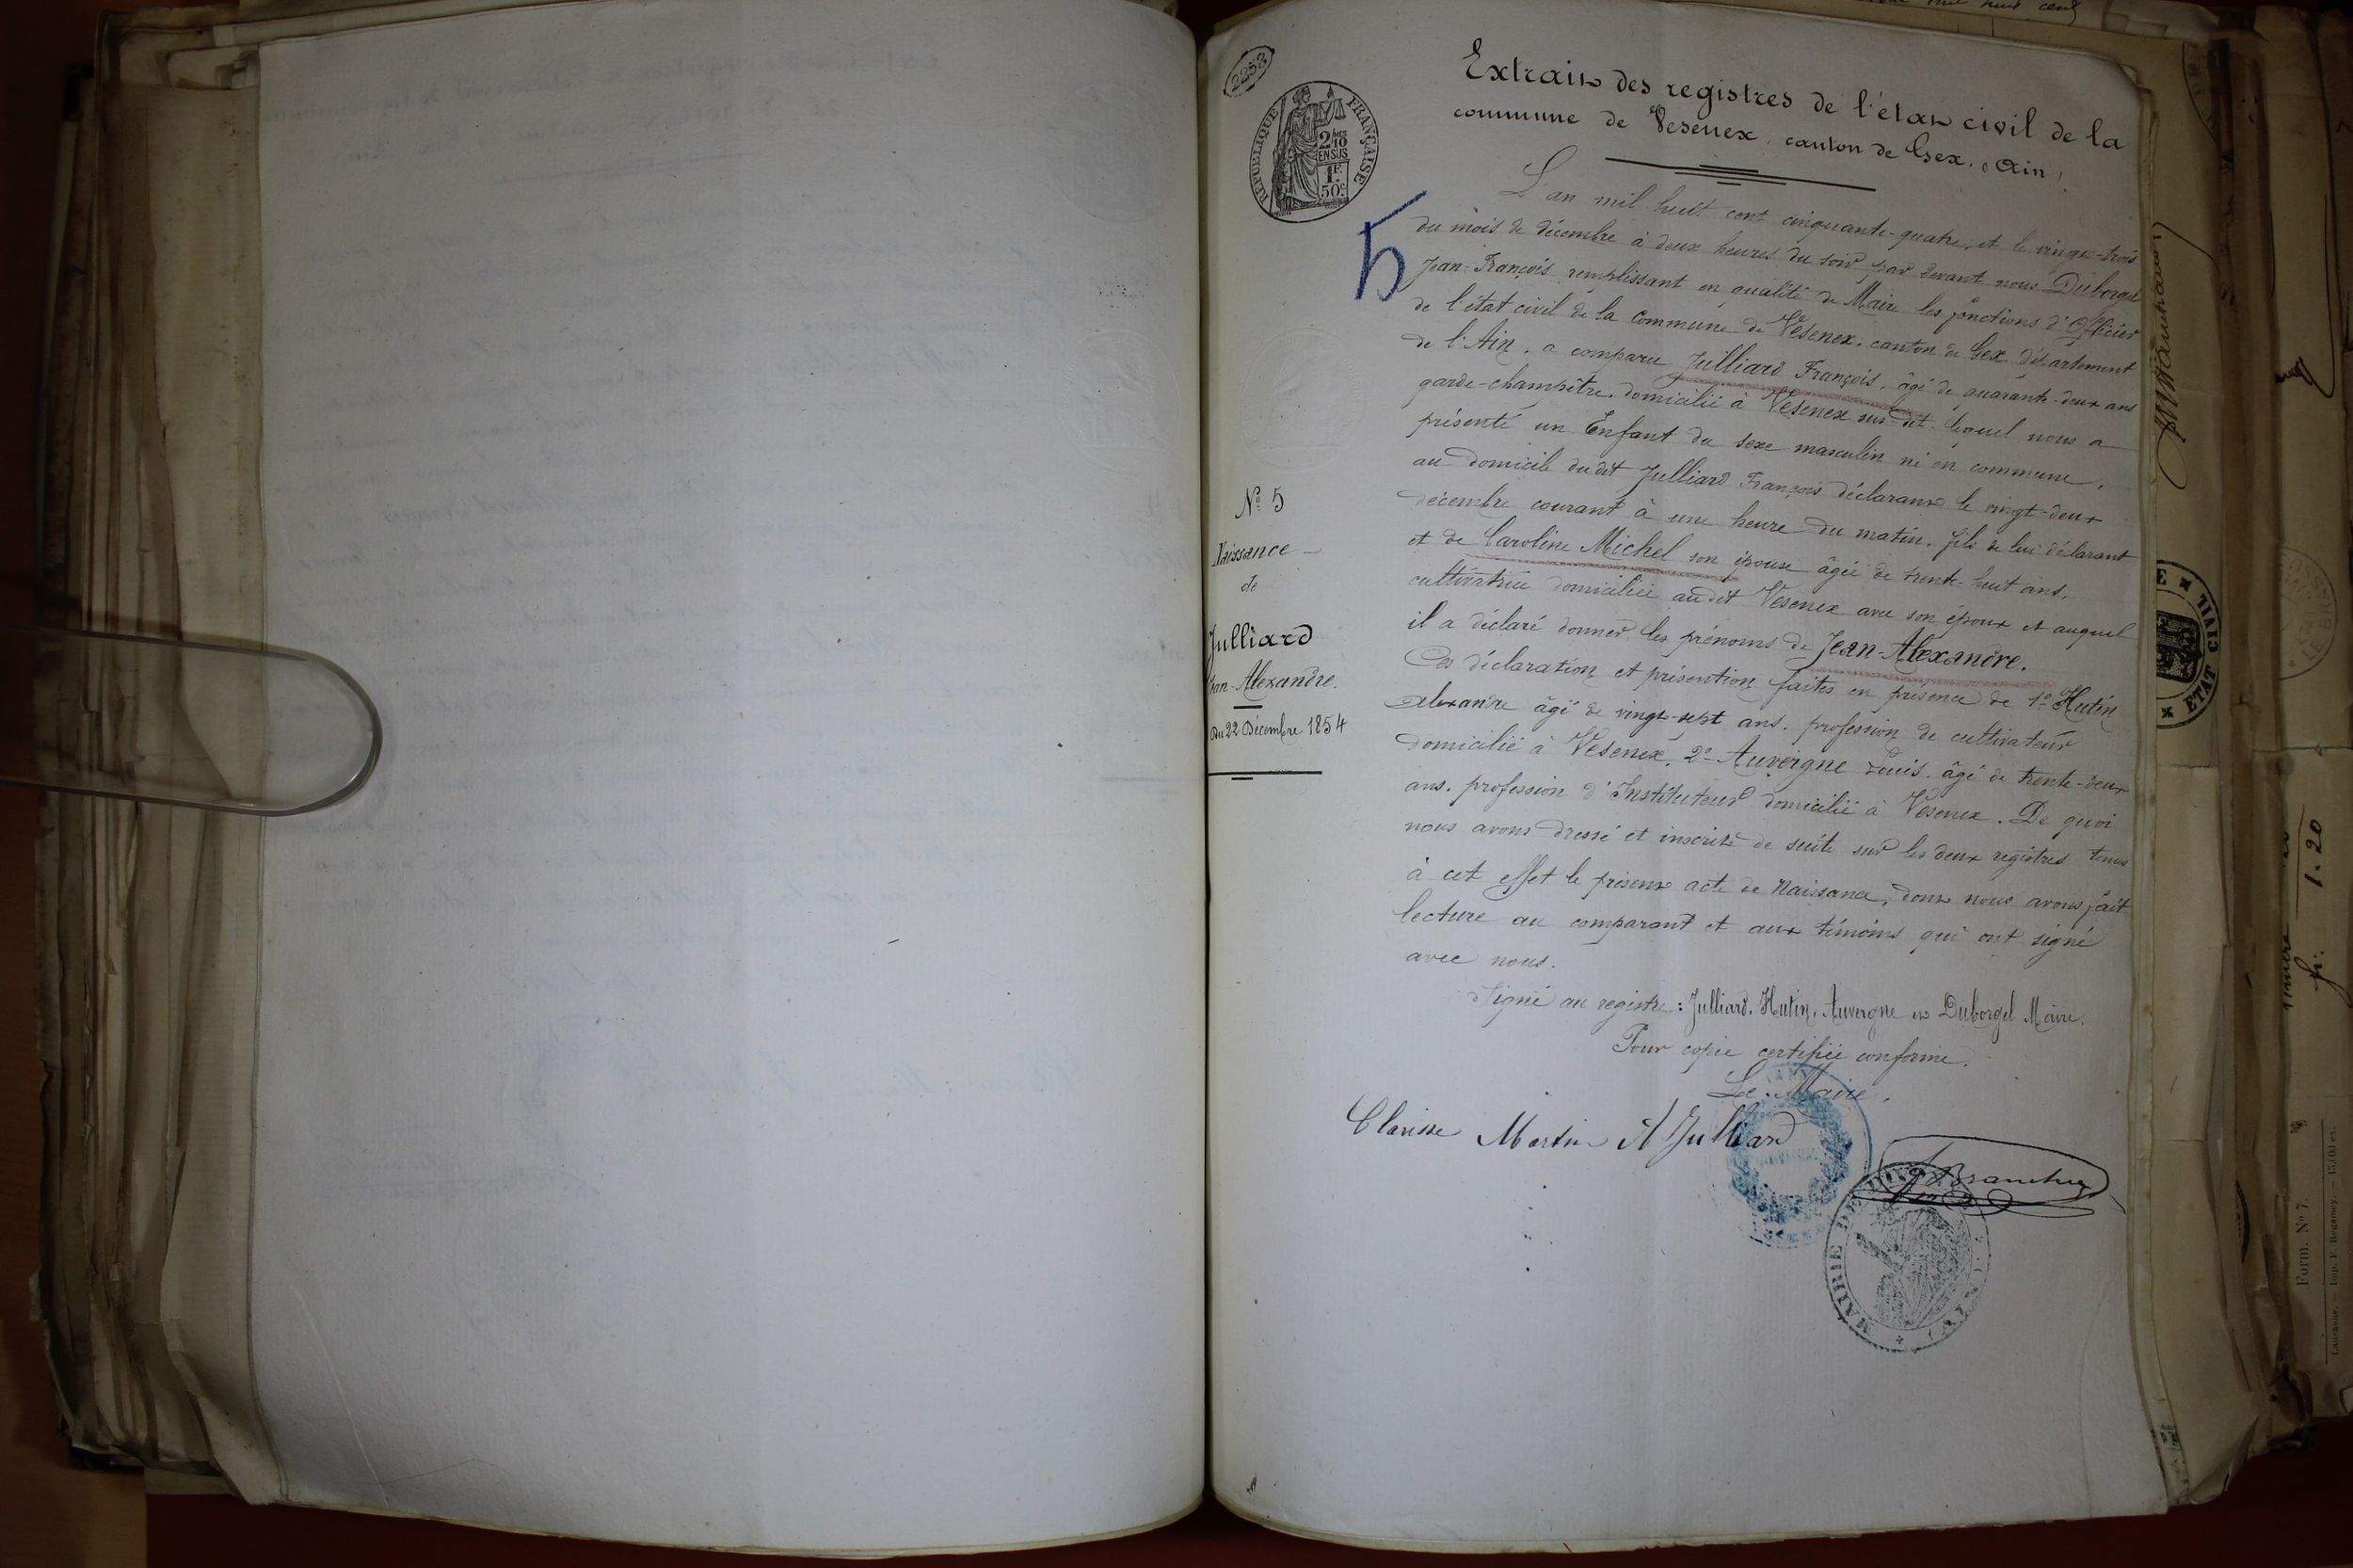 2253
RÉPUBLIQUE FRANÇAISE
2/10
EN SUS
1F
50c
Extrait des registres de l'état civil de la
commune de Vesenex, canton de Gex. (Ain)
5
L'an mil huit cent cinquante-quatre, et le vingt-trois
du mois de décembre à deux heures du soir par devant nous Duborgel
Jean-François remplissant en qualité de Maire les fonctions d'Officier
de l'état civil de la Commune de Vésenex, canton de Gex département
de l'Ain, a comparu Julliard François, âgé de quarante-deux ans
garde-champêtre, domicilié à Vesenex sus-dit, lequel nous a
présenté un Enfant du sexe masculin né en commune,
au domicile dudit Julliard François déclarant le vingt-deux
décembre courant à une heure du matin, fils de lui déclarant
et de Caroline Michel son épouse âgée de trente-huit ans,
cultivatrice domiciliée audit Vesenex avec son époux et auquel
il a déclaré donner les prénoms de Jean-Alexandre.
Ces déclaration et présention faites en présence de 1o Hutin
Alexandre âgé de vingt-sept ans, profession de cultivateur
domicilié à Vesenex, 2o Auvergne Louis âgé de trente-deux
ans, profession d'Instituteur domicilié à Vesenex. De quoi
nous avons dressé et inscrit de suite sur les deux registres tenus
à cet effet le présent acte de Naissance, dont nous avons fait
lecture au comparant et aux témoins qui ont signé
avec nous.
Signé au registre : Julliard, Hutin, Auvergne et Duborgel Maire.
Pour copie certifiée conforme.
Le Maire,
No 5
Naissance
de
Julliard
Jean-Alexandre.
Du 22 Décembre 1854
Clarisse Martin A Julliard
MAIRIE DE
ETAT CIVIL
fr. 1.20
Form. No 7.